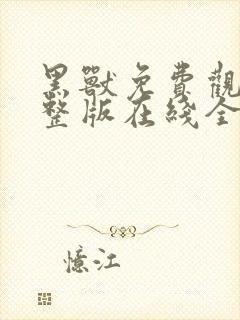 黑獸免費觀
整版在綫全
憶江